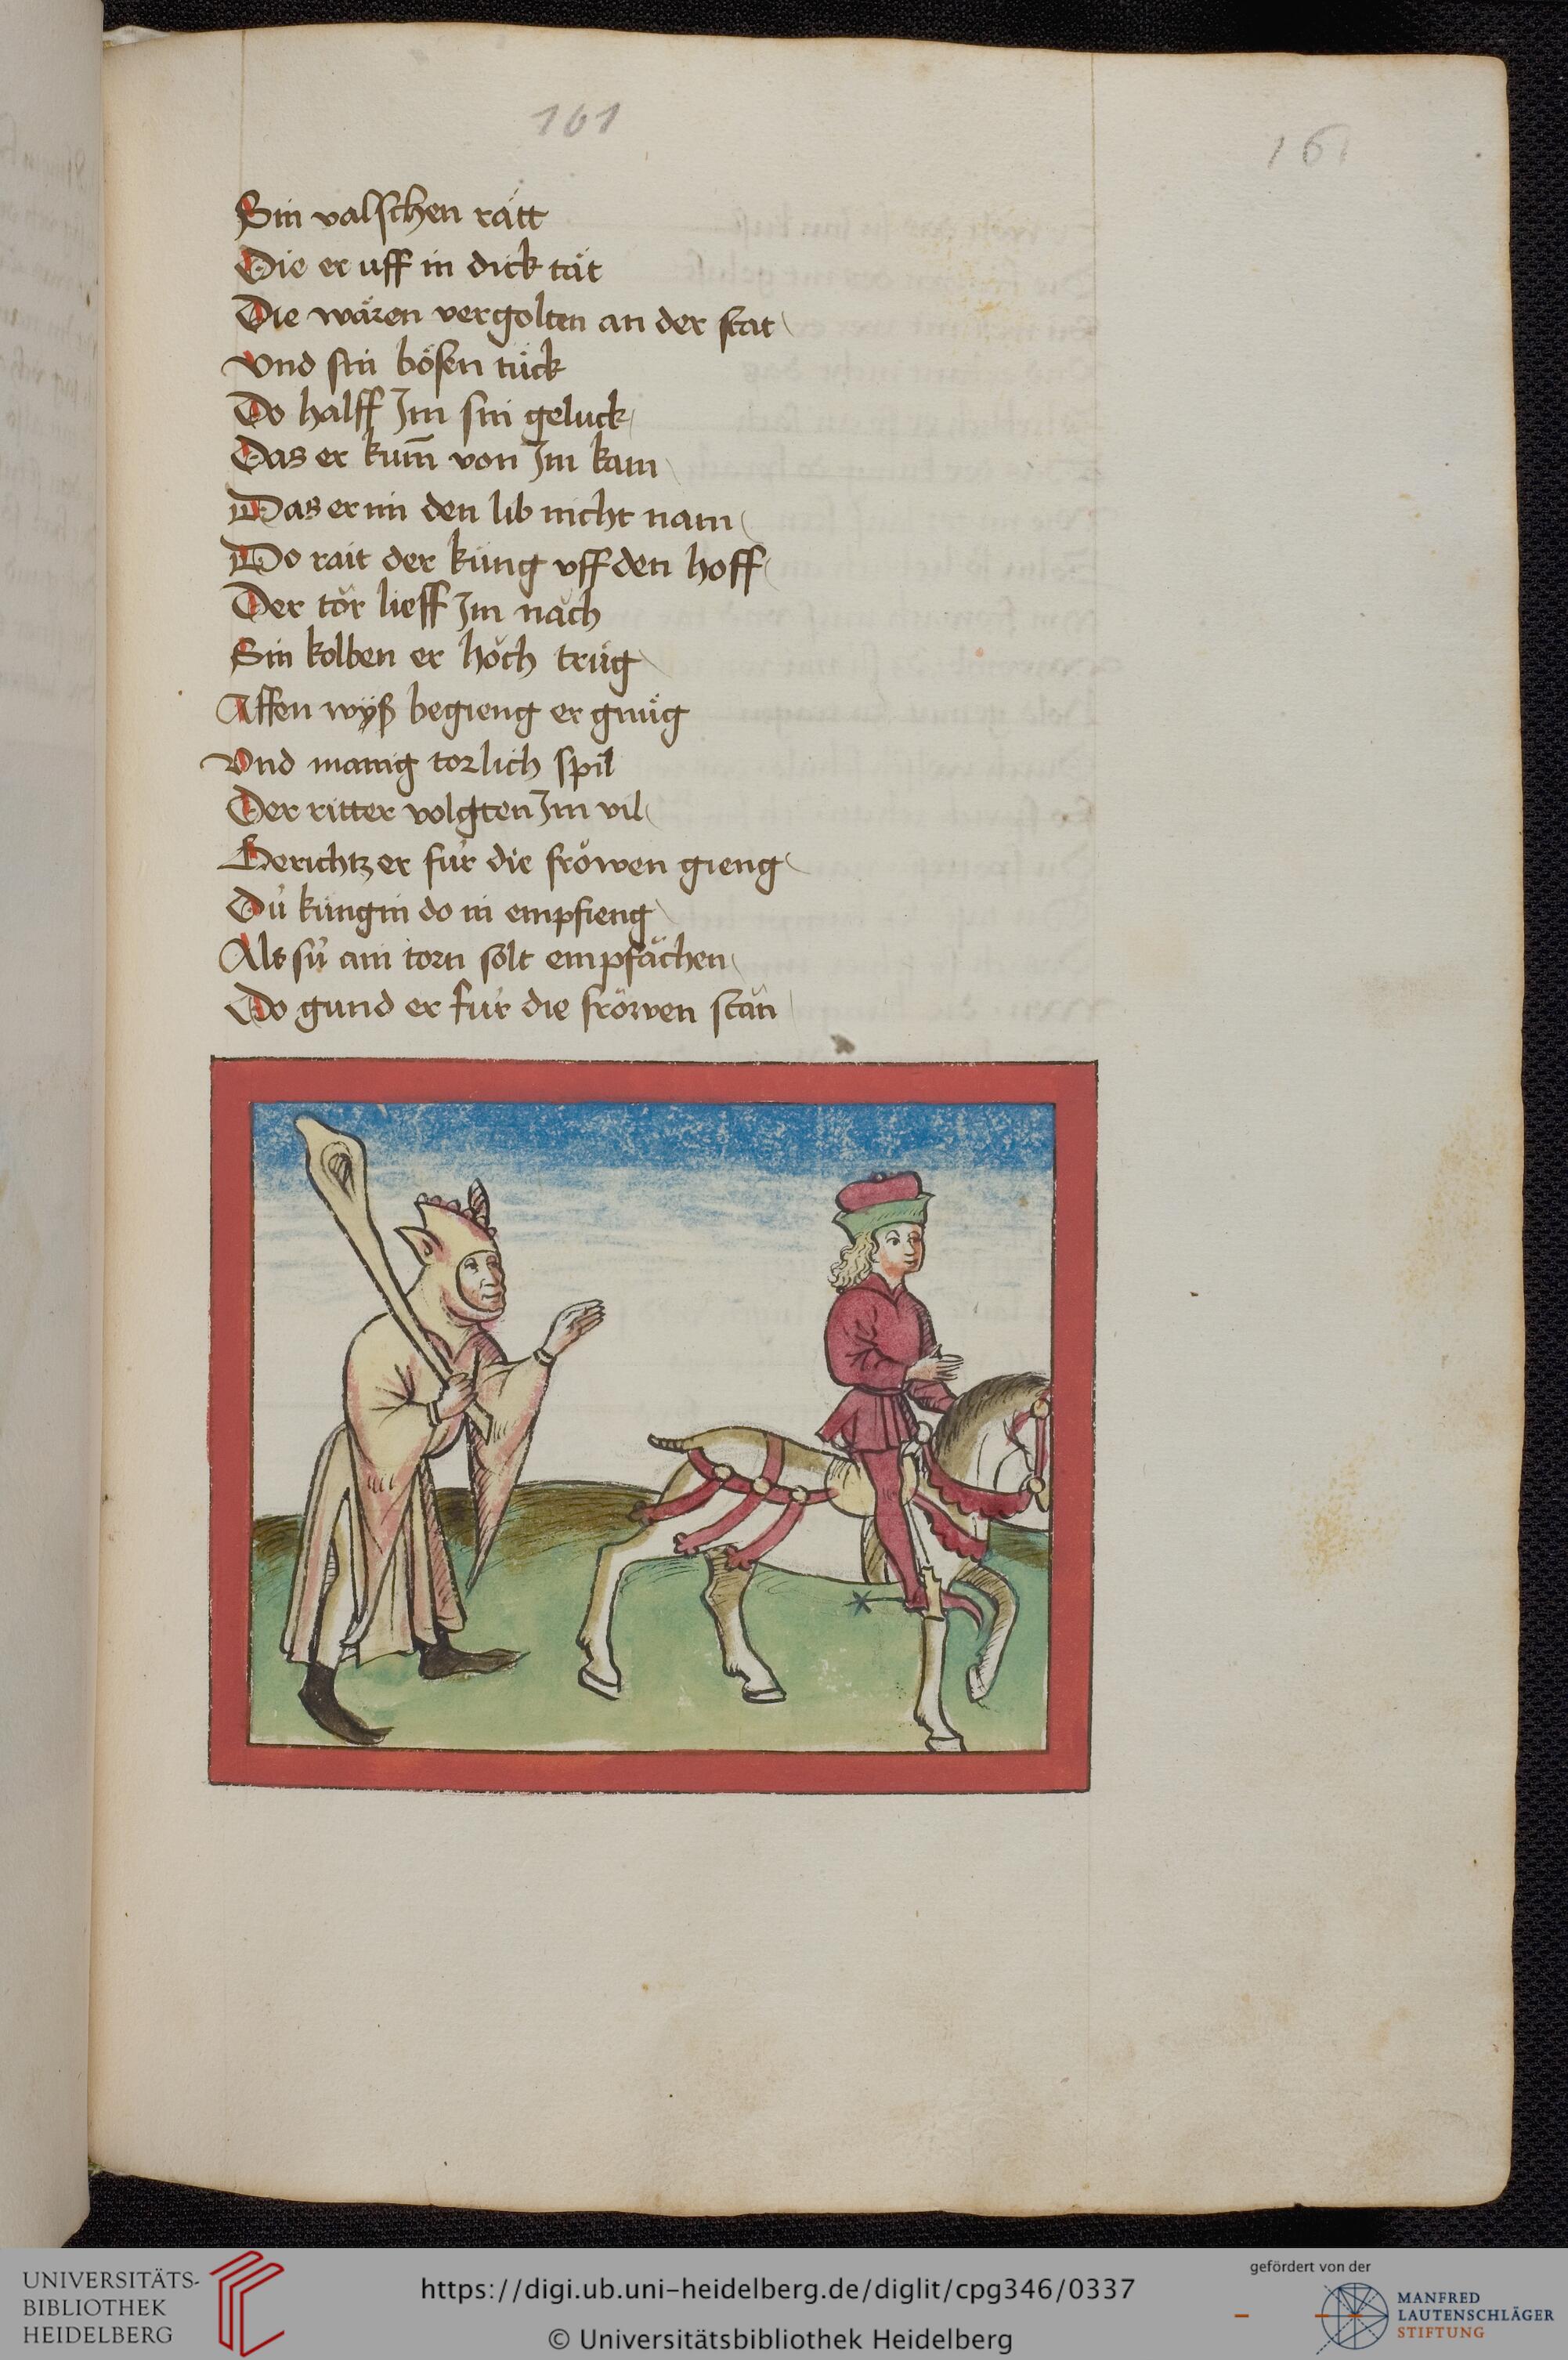 161
161
Sin valschen rätt
Die er uff in dick tät
Die wären vergolten an der stat
Vnd sin bösen tück
Do halff Im sin geluck
Das er kum̄ von Im kam
Das er im den lib nicht nam
Do rait der küng vff den hoff
Der tör lieff Im nach
Sin kolben er höch trüg
Affen wÿß begieng er gnüg
Vnd manig torlich spil
Der ritter volgten Im vil
Gerichtz er für die fröwen gieng
Dü küngin do in empfieng
Als sü ain torn solt empfächen
Do gund er für die fröwen stän
UNIVERSITÄTS-
BIBLIOTHEK
HEIDELBERG
https://digi.ub.uni-heidelberg.de/diglit/cpg346/0337
© Universitätsbibliothek Heidelberg
gefördert von der
MANFRED
LAUTENSCHLÄGER
STIFTUNG